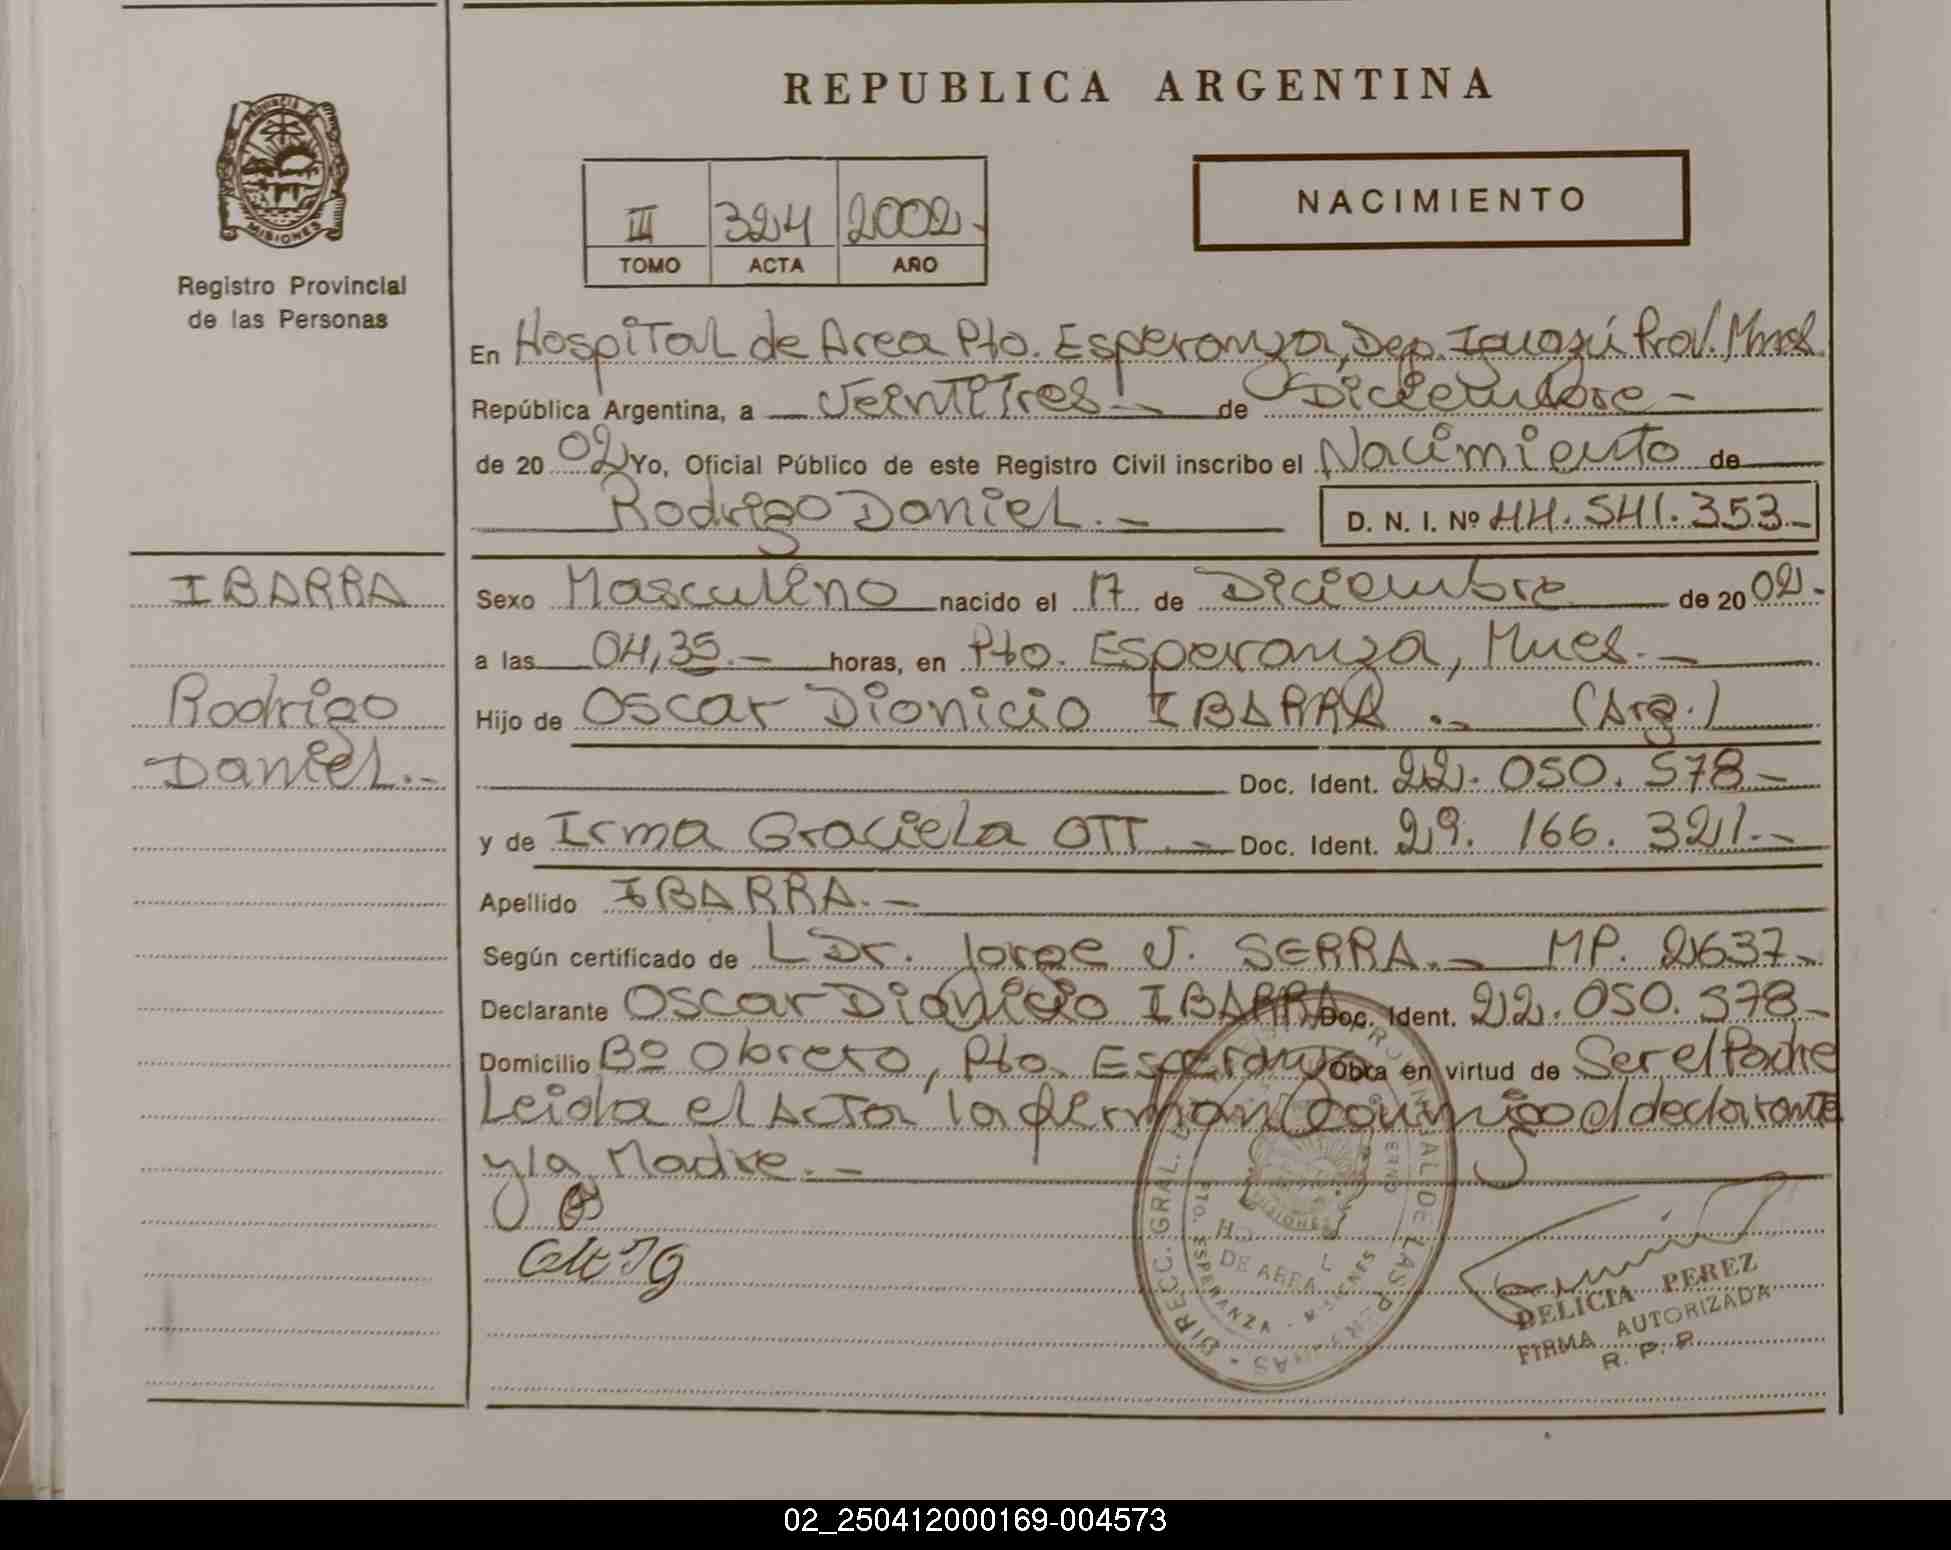 REPUBLICA ARGENTINA
PROVINCIA
MISIONES
Registro Provincial
de las Personas
III 324 2002.-
TOMO ACTA AÑO
NACIMIENTO
En Hospital de Area Pto. Esperanza, Dep. Iguazú Prov. Mnes.
República Argentina, a Veintitres.- de Diciembre -
de 2002 Yo, Oficial Público de este Registro Civil inscribo el Nacimiento de
Rodrigo Daniel.- D. N. I. Nº 44.541.353-
IBARRA
Rodrigo
Daniel.-
Sexo Masculino nacido el 17 de Diciembre de 2002.-
a las 04,35.- horas, en Pto. Esperanza, Mnes.-
Hijo de Oscar Dionicio IBARRA.- (Arg.)
Doc. Ident. 22.050.578-
y de Irma Graciela OTT.- Doc. Ident. 29.166.321.-
Apellido IBARRA.-
Según certificado de Dr. Jorge V. SERRA.- MP. 2637-
Declarante Oscar Dionicio IBARRA Doc. Ident. 22.050.578-
Domicilio Bº Obrero, Pto. Esperanza Obra en virtud de Ser el Padre
Leida el Acta la firman conmigo el declarante
y la Madre.-
DIRECC. GRAL. DE LAS PERSONAS
PTO. ESPERANZA - MISIONES
DE AREA
MISIONES
DELICIA PEREZ
FIRMA AUTORIZADA
R. P. P.
02_250412000169-004573